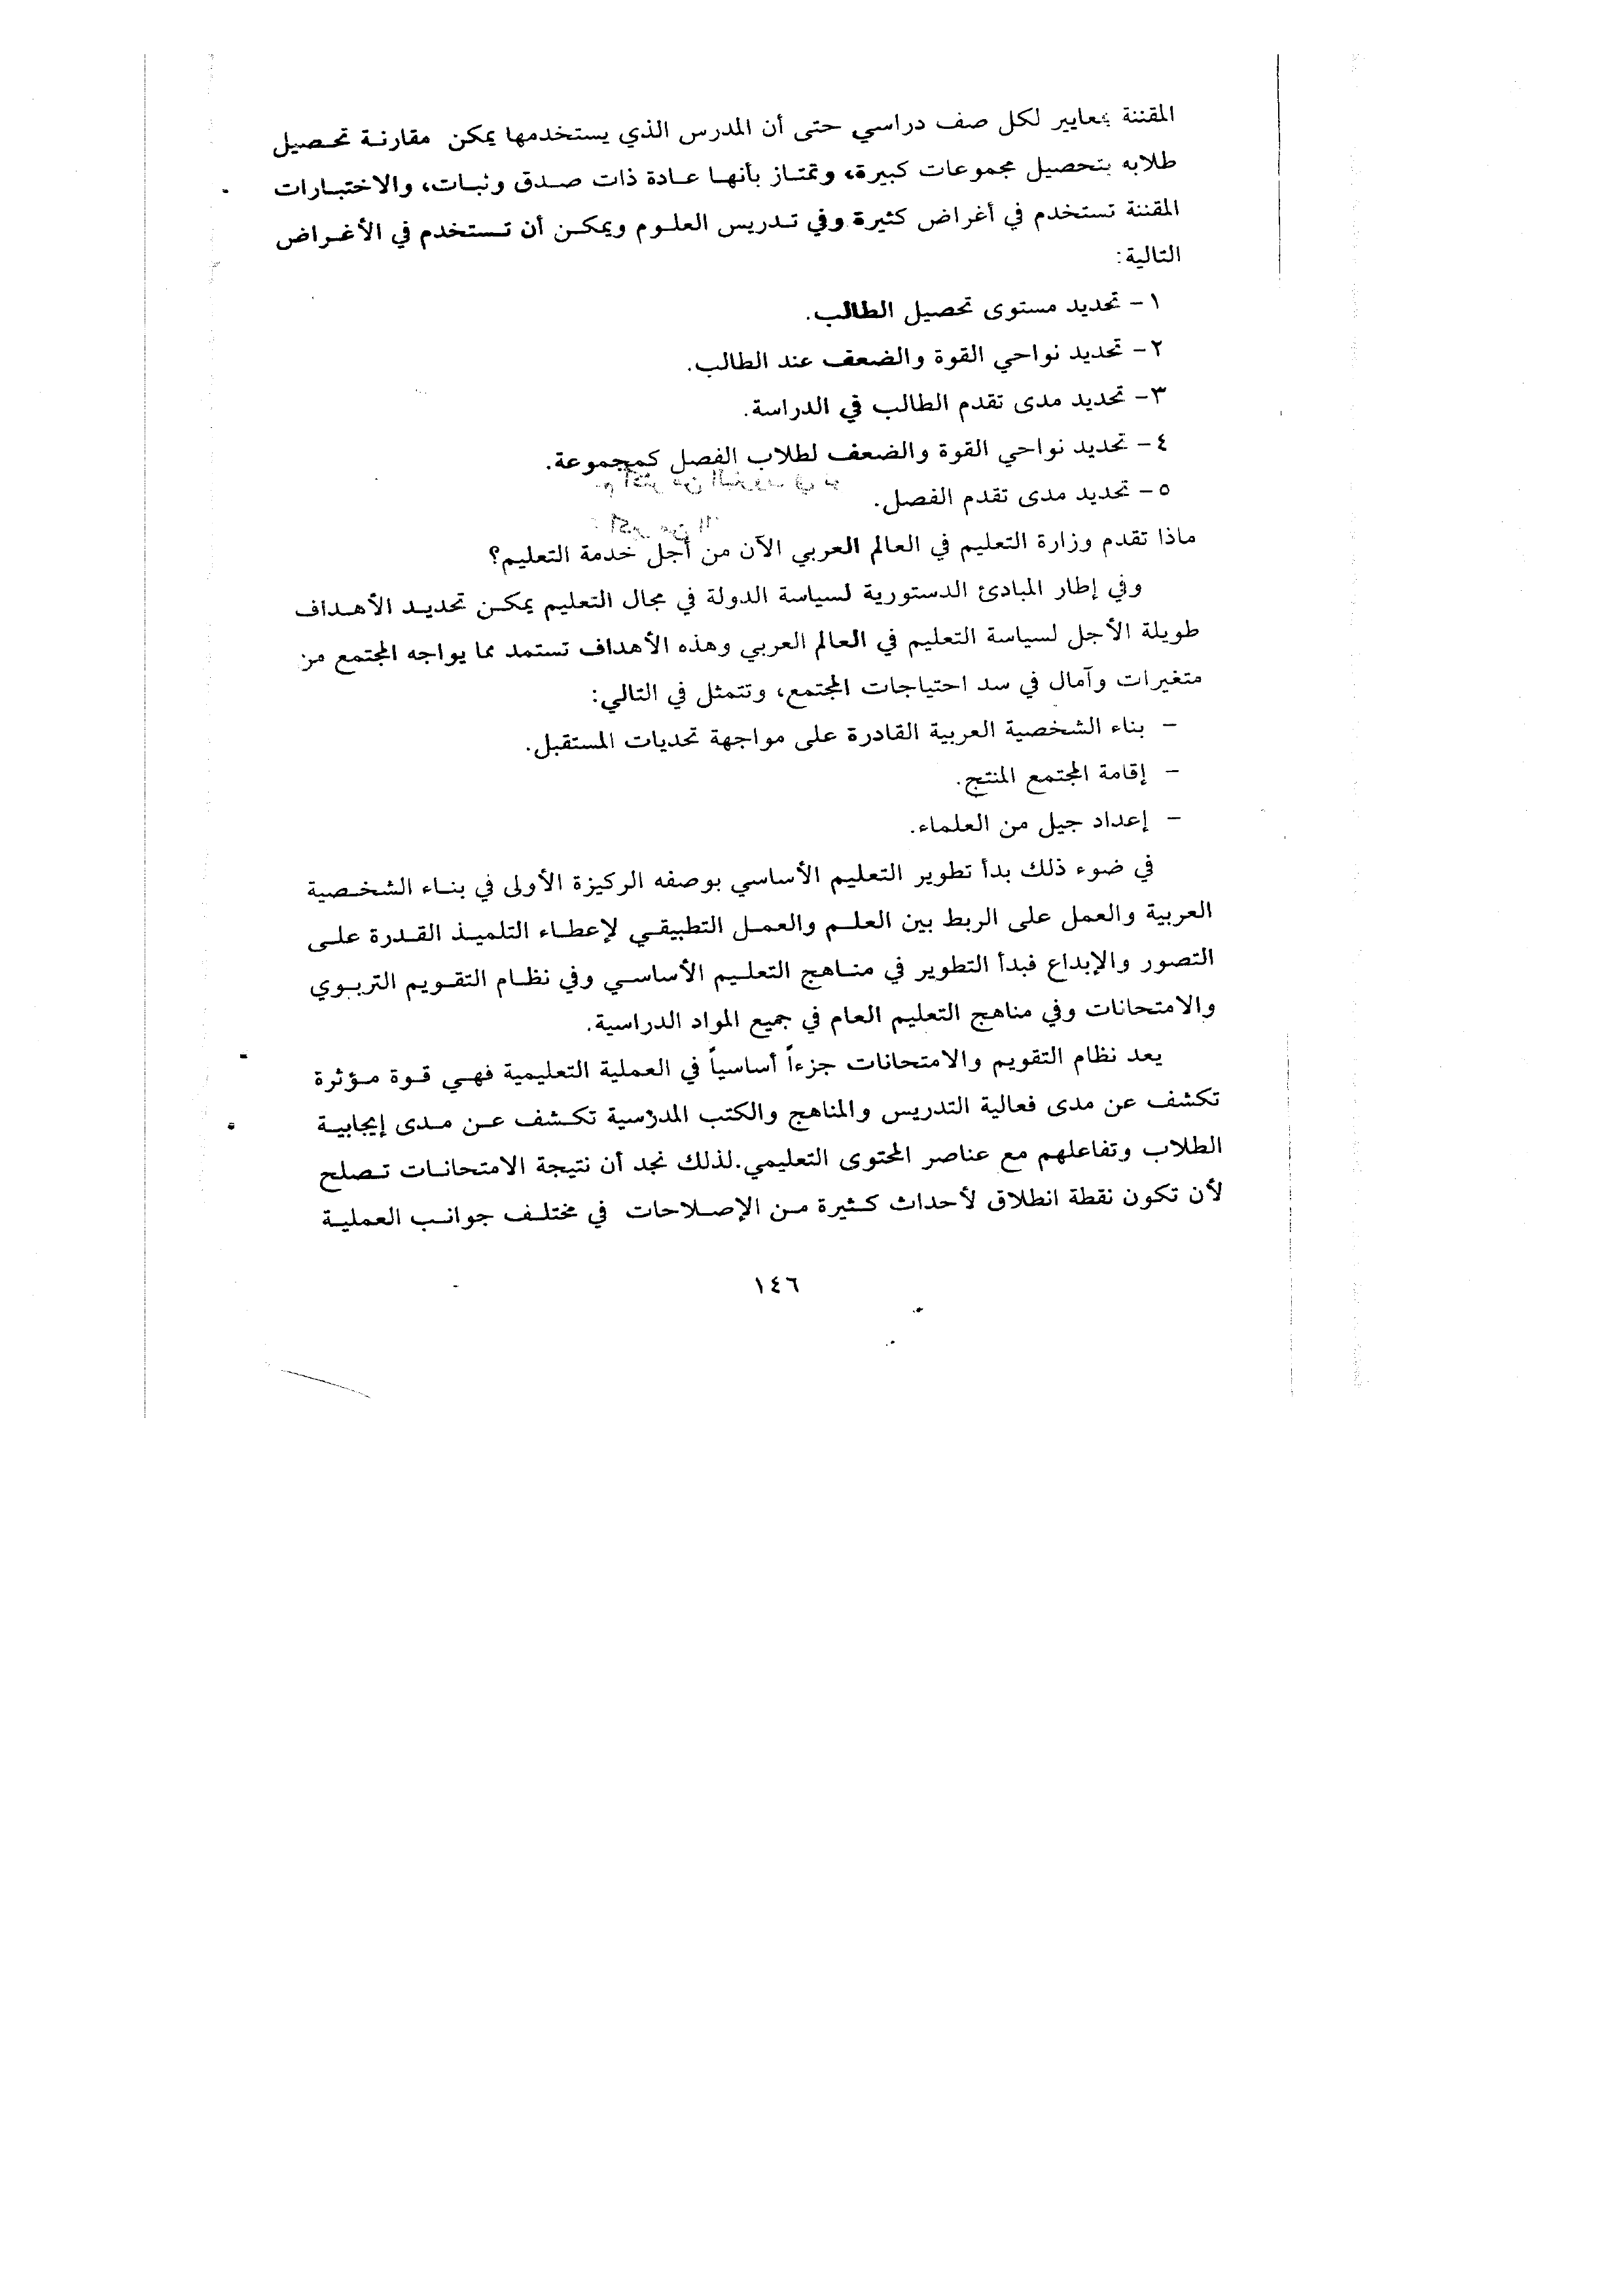 المقننة بمعايير لكل صف دراسي حتى أن المدرس الذي يستخدمها يمكن مقارنة تحصيل
طلابه بتحصيل مجموعات كبيرة، وتمتاز بأنها عادة ذات صدق وثبات، والاختبارات
المقننة تستخدم في أغراض كثيرة وفي تدريس العلوم ويمكن أن تستخدم في الأغراض
التالية:
١- تحديد مستوى تحصيل الطالب.
٢- تحديد نواحي القوة والضعف عند الطالب.
٣- تحديد مدى تقدم الطالب في الدراسة.
٤- تحديد نواحي القوة والضعف لطلاب الفصل كمجموعة.
٥- تحديد مدى تقدم الفصل.
ماذا تقدم وزارة التعليم في العالم العربي الآن من أجل خدمة التعليم؟
وفي إطار المبادئ الدستورية لسياسة الدولة في مجال التعليم يمكن تحديد الأهداف
طويلة الأجل لسياسة التعليم في العالم العربي وهذه الأهداف تستمد مما يواجه المجتمع من
متغيرات وآمال في سد احتياجات المجتمع، وتتمثل في التالي:
- بناء الشخصية العربية القادرة على مواجهة تحديات المستقبل.
- إقامة المجتمع المنتج.
- إعداد جيل من العلماء.
في ضوء ذلك بدأ تطوير التعليم الأساسي بوصفه الركيزة الأولى في بناء الشخصية
العربية والعمل على الربط بين العلم والعمل التطبيقي لإعطاء التلميذ القدرة على
التصور والإبداع فبدأ التطوير في مناهج التعليم الأساسي وفي نظام التقويم التربوي
والامتحانات وفي مناهج التعليم العام في جميع المواد الدراسية.
يعد نظام التقويم والامتحانات جزءاً أساسياً في العملية التعليمية فهي قوة مؤثرة
تكشف عن مدى فعالية التدريس والمناهج والكتب المدرسية تكشف عن مدى إيجابية
الطلاب وتفاعلهم مع عناصر المحتوى التعليمي.لذلك نجد أن نتيجة الامتحانات تصلح
لأن تكون نقطة انطلاق لأحداث كثيرة من الإصلاحات في مختلف جوانب العملية
١٤٦